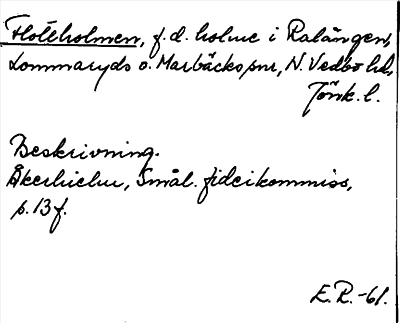 Flötéholmen, f.d. holme i Ralången,
Lommaryds o. Marbäcks snr, N. Vedbo hd,
Jönk. l.
Beskrivning.
Åkerhielm, Smål. fideikommiss,
s. 13 f.
E.R. -61.